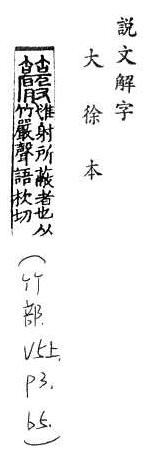 説文解字
大徐本
惟射所蔽者也从
竹嚴聲語杴切
(竹部. V5上. P3. b5.)